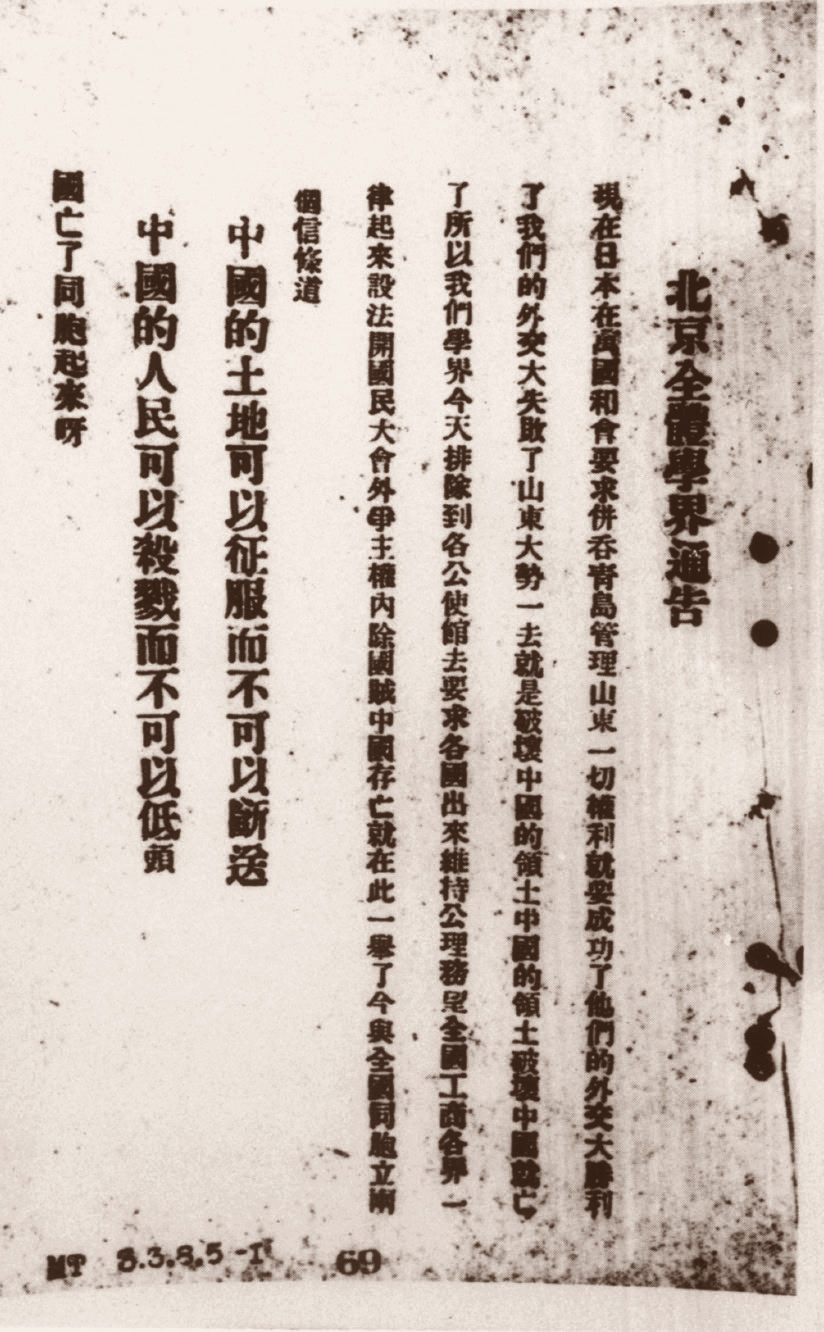 北京全體學界通告
現在日本在萬國和會要求併吞青島管理山東一切權利就要成功了他們的外交大勝利
了我們的外交大失敗了山東大勢一去就是破壞中國的領土中國的領土破壞中國就亡
了所以我們學界今天排除到各公使館去要求各國出來維持公理務望全國工商各界一
律起來設法開國民大會外爭主權內除國賊中國存亡就在此一舉了今與全國同胞立兩
個信條道
中國的土地可以征服而不可以斷送
中國的人民可以殺戮而不可以低頭
國亡了同胞起來呀
MT 8.3.8.5 -1 69